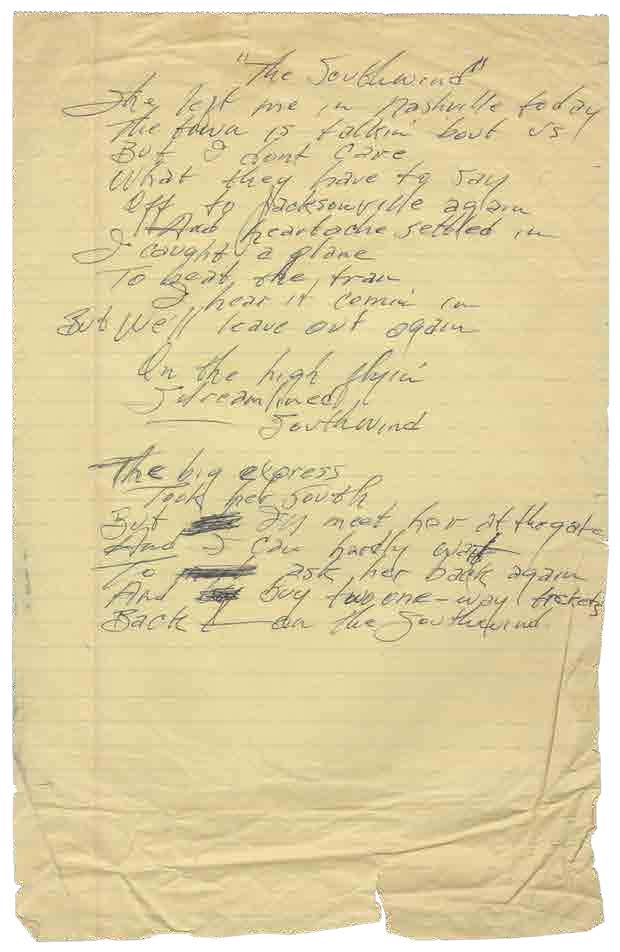 "The Southwind"
She left me in Nashville today
The town is talkin' bout us
But I dont care
What they have to say
Off to Jacksonville again
And heartache settled in
I caught a plane
To beat the train
I hear it comin' in
But We'll leave out again
In the high flyin'
Streamlined
Southwind
The big express
Took her South
But I'll meet her at the gate
And I can hardly wait
To ask her back again
And buy two one-way tickets
Back on the Southwind